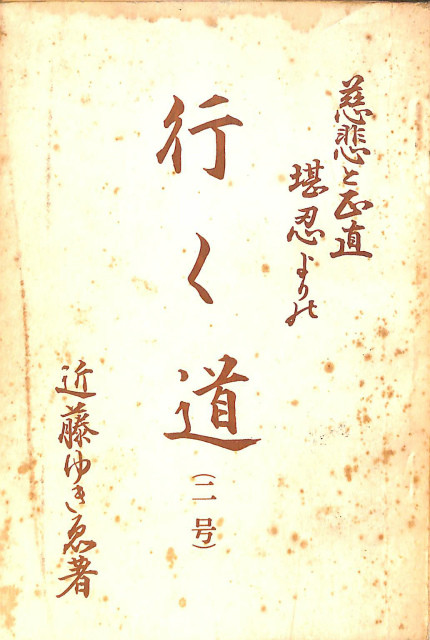 慈悲と正直
堪忍よりの
行く道
(二号)
近藤ゆきゑ著